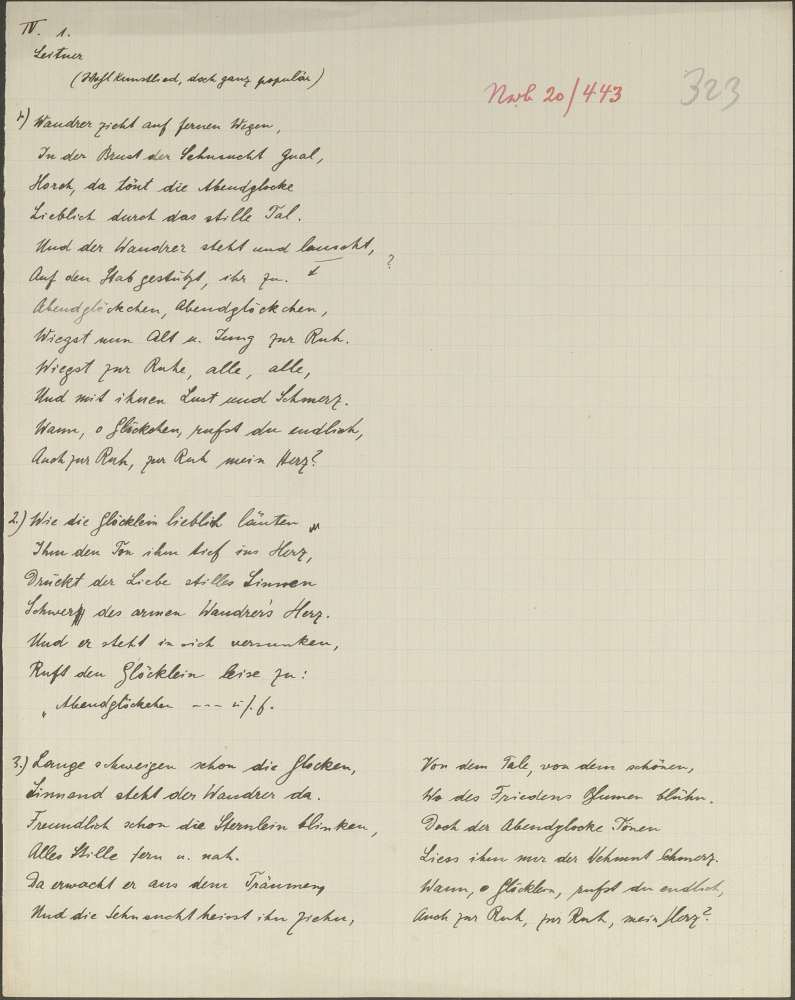 IV. 1.
Leitner
(Wohl Kunstlied, doch ganz populär)
Nwb 20/443
323
1) Wandrer zieht auf fernen Wegen,
In der Brust der Sehnsucht Qual,
Horch, da tönt die Abendglocke
Lieblich durch das stille Tal.
Und der Wandrer steht und lauscht, ?
Auf den Stab gestützt, ihr zu.
Abendglöckchen, Abendglöckchen,
Wiegst nun Alt u. Jung zur Ruh.
Wiegst zur Ruhe, alle, alle,
Und mit ihnen Lust und Schmerz.
Wann, o Glöckchen, rufst du endlich,
Auch zur Ruh, zur Ruh mein Herz?
2.) Wie die Glöcklein lieblich läuten
Ihm den Ton ihm tief ins Herz,
Drückt der Liebe stilles Sinnen
Schwer des armen Wandrer's Herz.
Und er steht in sich versunken,
Ruft den Glöcklein leise zu:
„Abendglöckchen --- u.s.f.
3.) Lange schweigen schon die Glocken,
Sinnend steht der Wandrer da.
Freundlich schon die Sternlein blinken,
Alles Stille fern u. nah.
Da erwacht er aus dem Träumen,
Und die Sehnsucht heisst ihn ziehn,
Von dem Tale, von dem schönen,
Wo des Friedens Blumen blühn.
Doch der Abendglocke Tönen
Liess ihm nur der Wehmut Schmerz.
Wann, o Glöcklein, rufst du endlich,
Auch zur Ruh, zur Ruh, mein Herz?